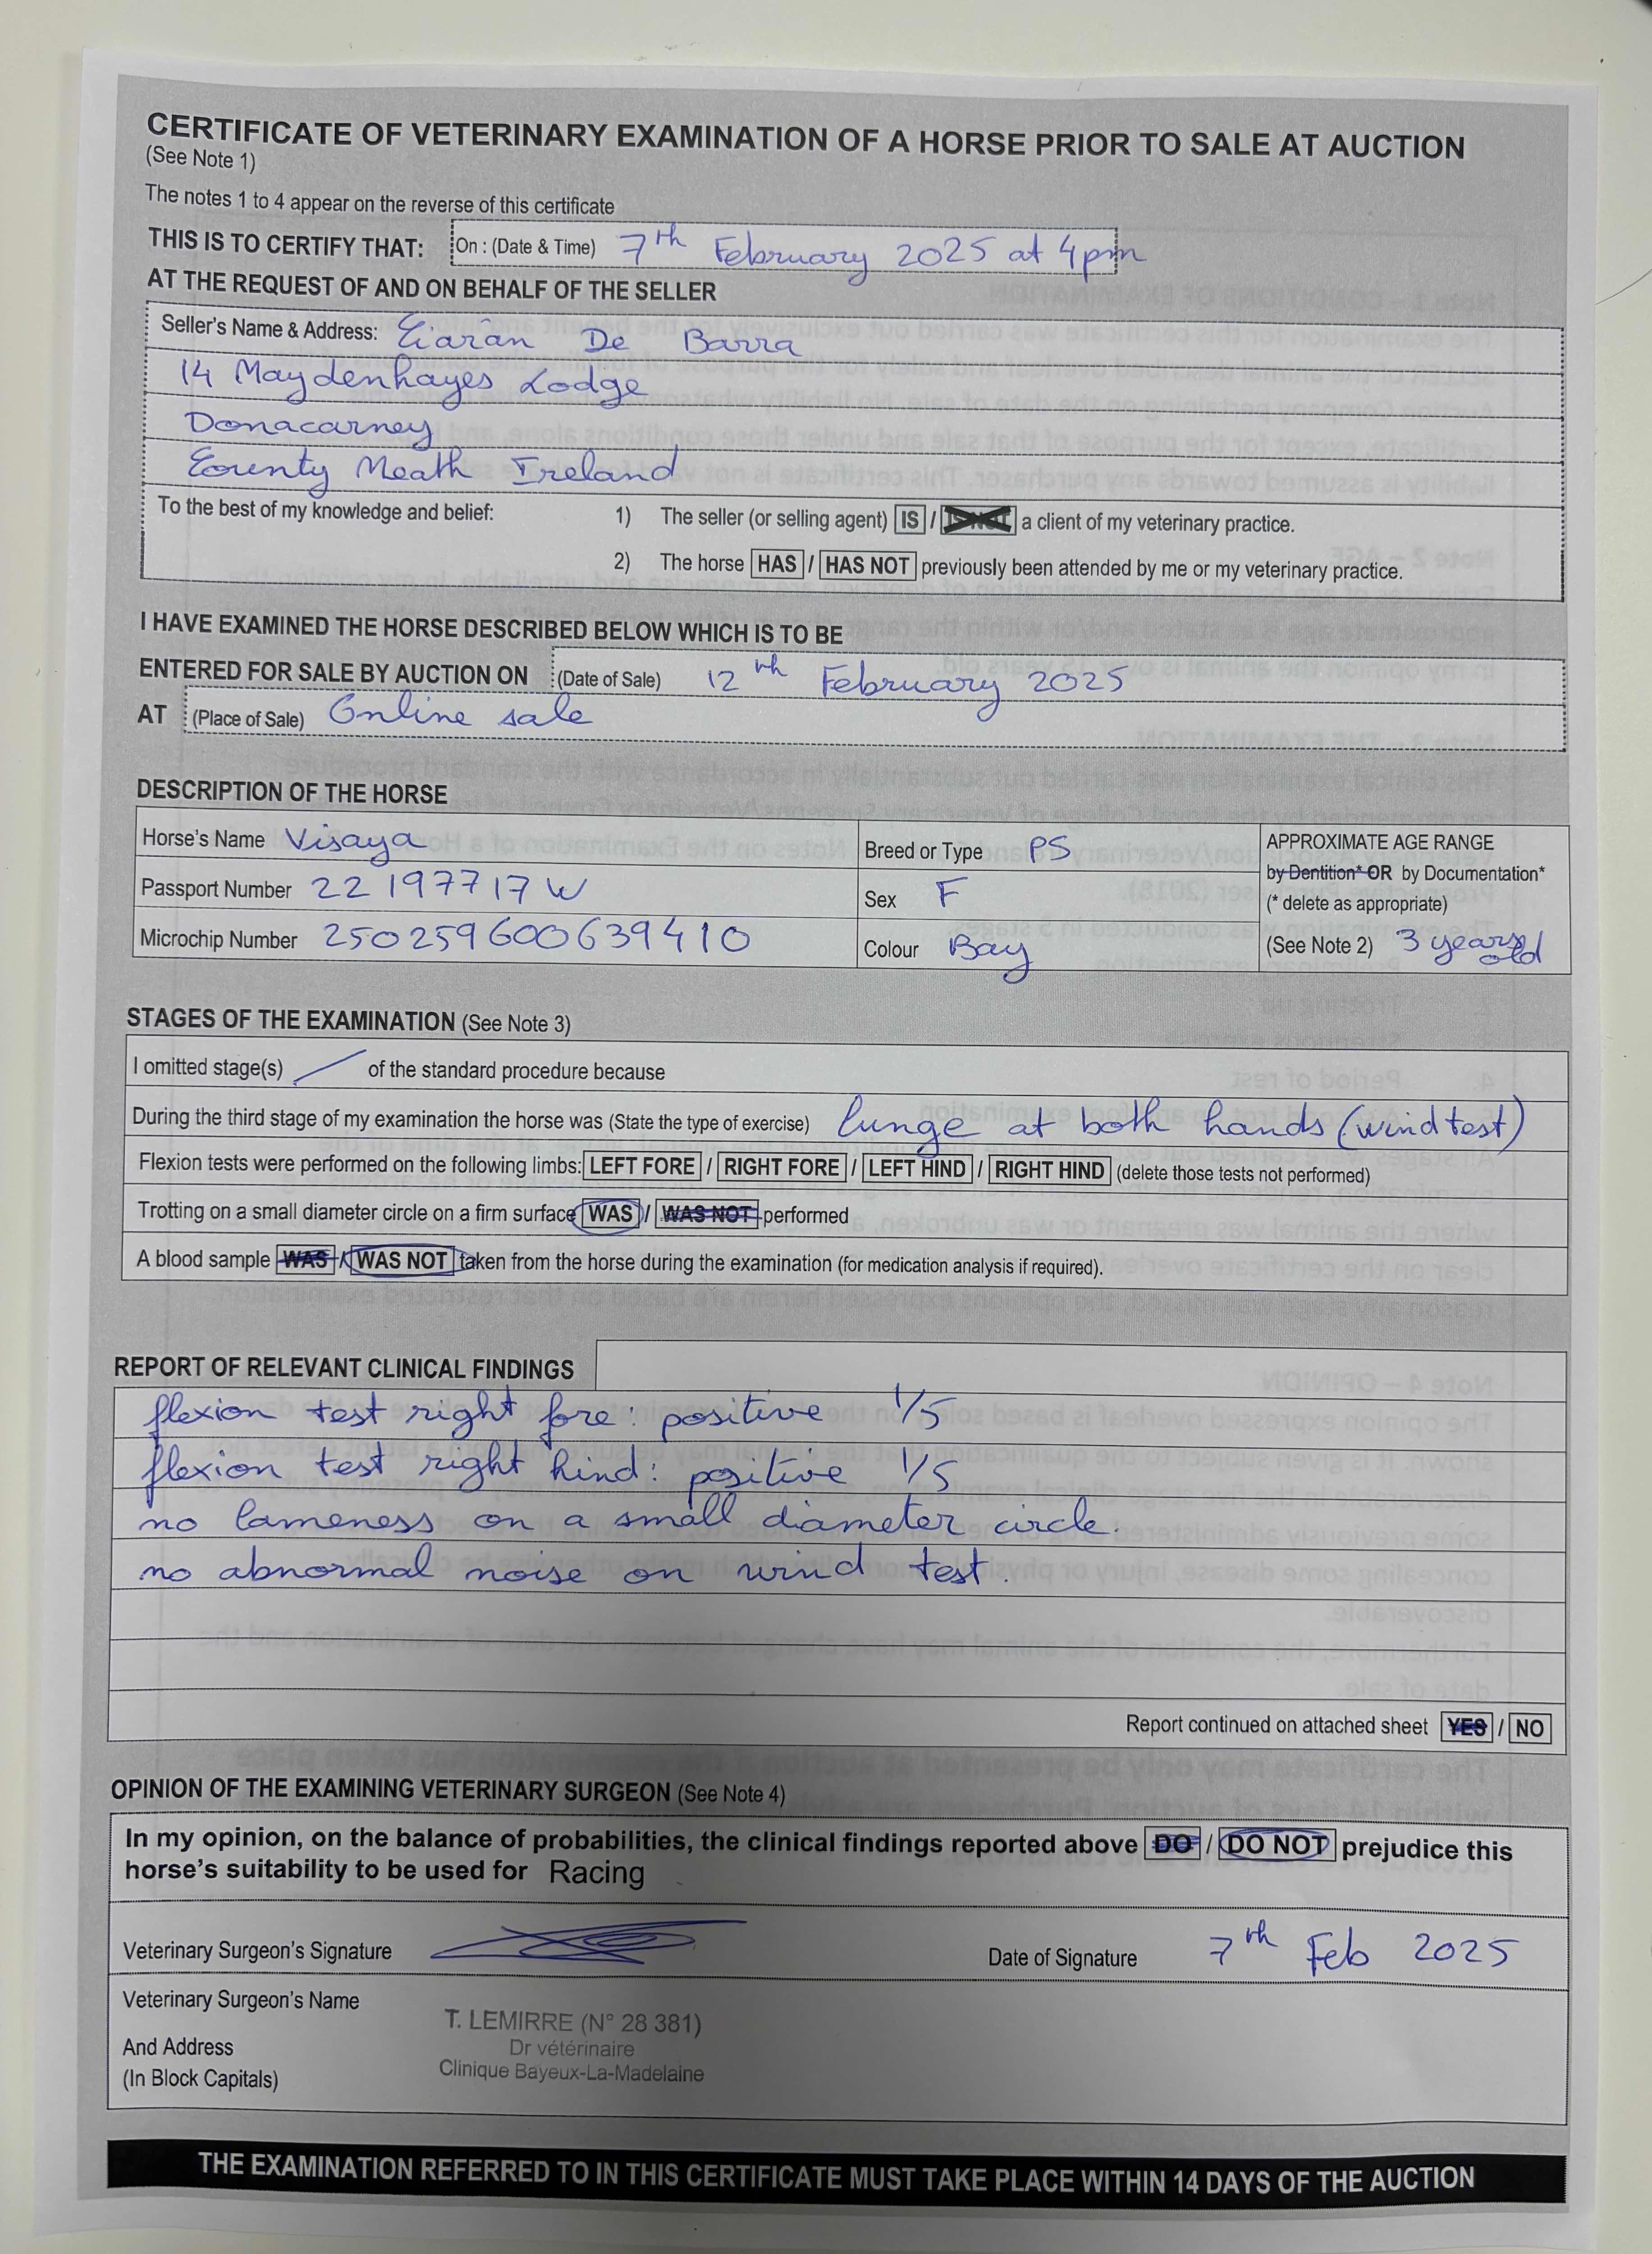 CERTIFICATE OF VETERINARY EXAMINATION OF A HORSE PRIOR TO SALE AT AUCTION
(See Note 1)
The notes 1 to 4 appear on the reverse of this certificate
THIS IS TO CERTIFY THAT: On : (Date & Time) 7th February 2025 at 4pm
AT THE REQUEST OF AND ON BEHALF OF THE SELLER
Seller's Name & Address: Ciaran De Barra
14 Maydenhayes Lodge
Donacarney
County Meath Ireland
To the best of my knowledge and belief: 1) The seller (or selling agent) IS / IS NOT a client of my veterinary practice.
2) The horse HAS / HAS NOT previously been attended by me or my veterinary practice.
I HAVE EXAMINED THE HORSE DESCRIBED BELOW WHICH IS TO BE
ENTERED FOR SALE BY AUCTION ON (Date of Sale) 12th February 2025
AT (Place of Sale) Online sale
DESCRIPTION OF THE HORSE
Horse's Name Visaya Breed or Type PS APPROXIMATE AGE RANGE
by Dentition* OR by Documentation*
Passport Number 22 197717 W Sex F (* delete as appropriate)
Microchip Number 250259600639410 Colour Bay (See Note 2) 3 years old
STAGES OF THE EXAMINATION (See Note 3)
I omitted stage(s) / of the standard procedure because
During the third stage of my examination the horse was (State the type of exercise) lunge at both hands (wind test)
Flexion tests were performed on the following limbs: LEFT FORE / RIGHT FORE / LEFT HIND / RIGHT HIND (delete those tests not performed)
Trotting on a small diameter circle on a firm surface WAS / WAS NOT performed
A blood sample WAS / WAS NOT taken from the horse during the examination (for medication analysis if required).
REPORT OF RELEVANT CLINICAL FINDINGS
flexion test right fore : positive 1/5
flexion test right hind : positive 1/5
no lameness on a small diameter circle.
no abnormal noise on wind test.
Report continued on attached sheet YES / NO
OPINION OF THE EXAMINING VETERINARY SURGEON (See Note 4)
In my opinion, on the balance of probabilities, the clinical findings reported above DO / DO NOT prejudice this
horse's suitability to be used for Racing
Veterinary Surgeon's Signature Date of Signature 7th Feb 2025
Veterinary Surgeon's Name
And Address
(In Block Capitals)
T. LEMIRRE (N° 28 381)
Dr vétérinaire
Clinique Bayeux-La-Madelaine
THE EXAMINATION REFERRED TO IN THIS CERTIFICATE MUST TAKE PLACE WITHIN 14 DAYS OF THE AUCTION